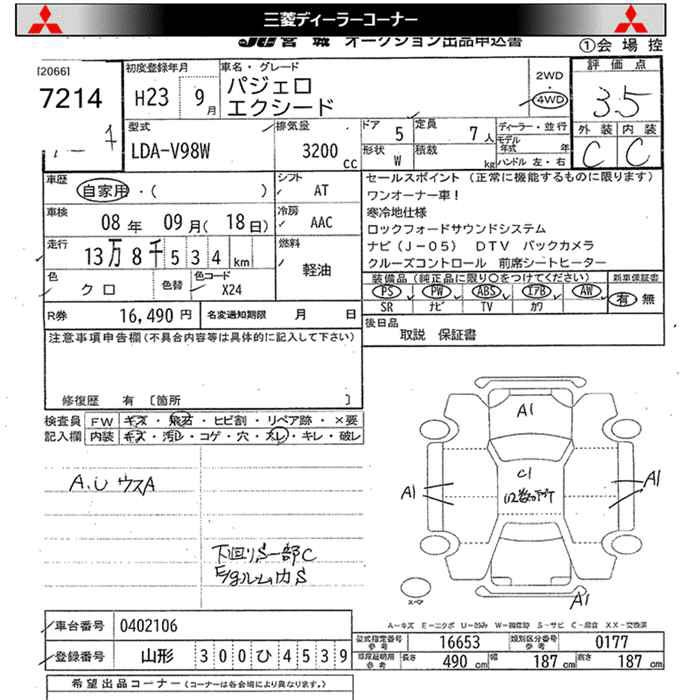 三菱ディーラーコーナー
JU宮城 オークション出品申込書
①会場控
[2066]
7214
初度登録年月
H23 9月
車名・グレード
パジェロ
エクシード
2WD
4WD
評価点
3.5
外装 内装
C C
型式
LDA-V98W
排気量
3200 cc
ドア 5
形状 W
定員 7人
積載 kg
ディーラー・並行
モデル年式 年
ハンドル 左・右
車歴
自家用・( )
シフト
AT
車検
08年 09月(18日)
冷房
AAC
走行
13万8千534km
燃料
軽油
色
クロ
色替
色コード
X24
R券 16,490円
名変通知期限 月 日
セールスポイント(正常に機能するものに限ります)
ワンオーナー車!
寒冷地仕様
ロックフォードサウンドシステム
ナビ(J-05) DTV バックカメラ
クルーズコントロール 前席シートヒーター
装備品(純正品に限り○をつけてください)
PS PW ABS エアB AW
SR ナビ TV カワ
新車保証書
有 無
後日品
取説 保証書
注意事項申告欄(不具合内容等は具体的に記入して下さい)
修復歴 有 [箇所 ]
検査員
記入欄
FW キズ・飛石・ヒビ割・リペア跡・×要
内装 キズ・汚レ・コゲ・穴・スレ・キレ・破レ
A.U ウスA
下回りS一部C
E/gルーム内S
A1
C1
A1
A1
A1
A-キズ E-エクボ U-凹み W-補修跡 S-サビ C-腐食 XX-交換済
車台番号 0402106
登録番号 山形 300ひ4539
型式指定番号 参考 16653
類別区分番号 参考 0177
車庫証明用 参考 長さ 490cm 幅 187cm 高さ 187cm
希望出品コーナー(コーナーは各会場により異なります。)